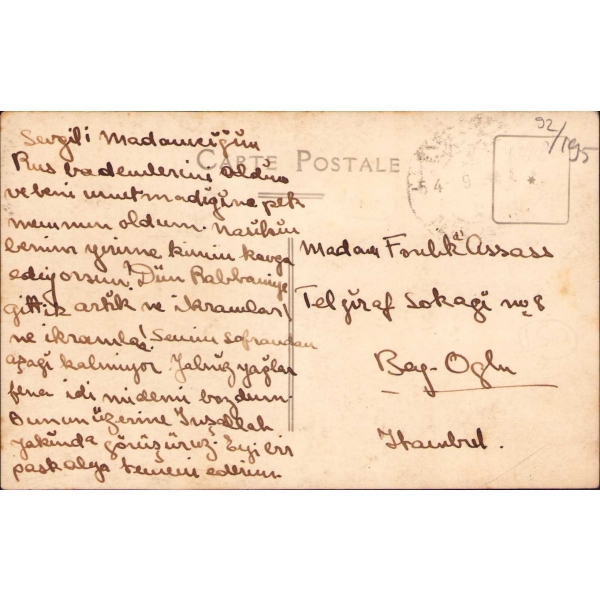 92/195
CARTE POSTALE
Sevgili Madamcığım
Rus bademlerini aldım
ve beni unutmadığına pek
memnun oldum. Nasılsın
benim yerime kimin kavga
ediyorsun! Dün
gittik artık ne ikramlar!
ne ikramlar! Senin sofrandan
aşağı kalmıyor. Yalnız yağlar
fena idi midemi bozdum
Bunun üzerine İnşallah
yakında görüşürüz. Eyi bir
paskalya temeni ederim.
Madam Assass
Telgiraf Sokagi no 8
Bay-Oglu
Istambul.